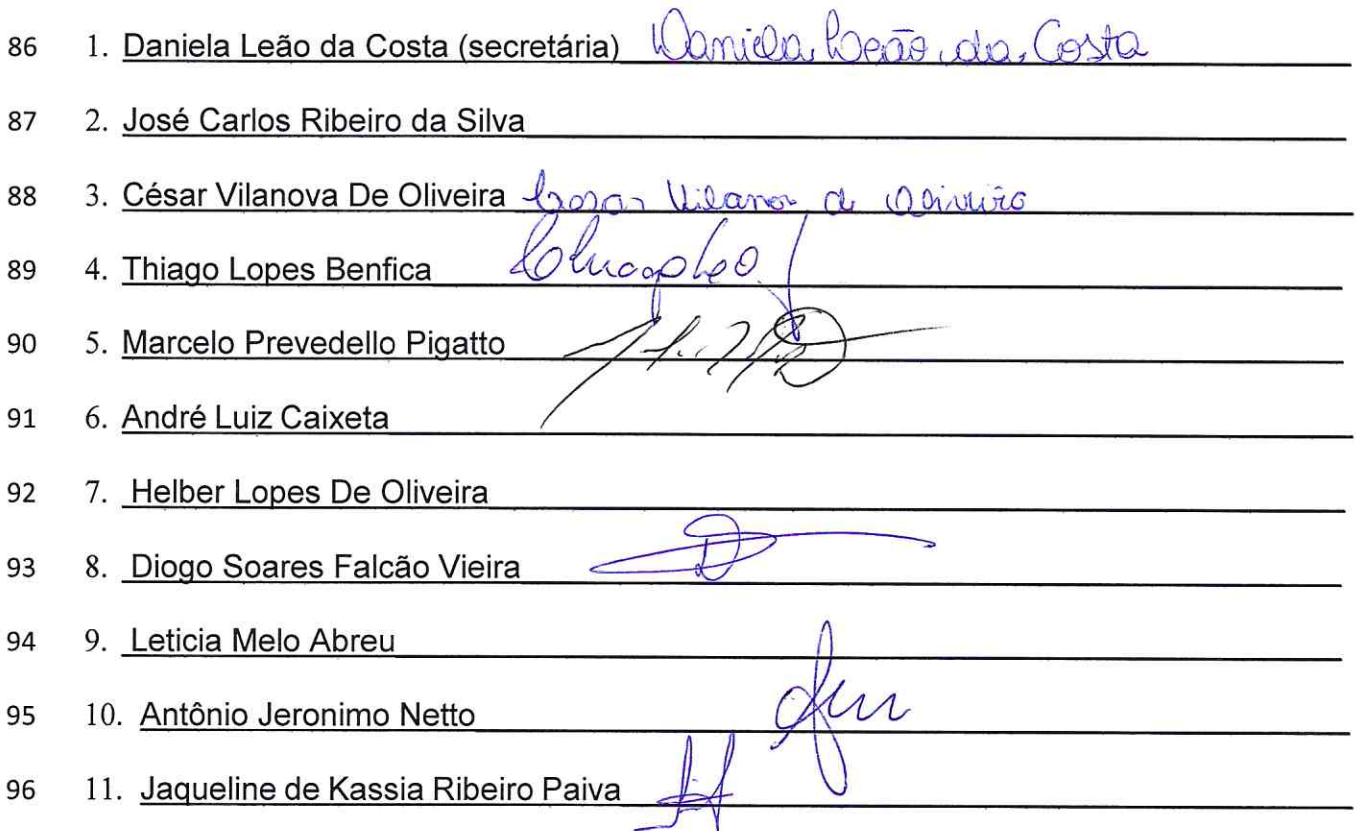 86 1. Daniela Leão da Costa (secretária) Daniela Leão da Costa
87 2. José Carlos Ribeiro da Silva
88 3. César Vilanova De Oliveira Cesar Vilanova de Oliveira
89 4. Thiago Lopes Benfica
90 5. Marcelo Prevedello Pigatto
91 6. André Luiz Caixeta
92 7. Helber Lopes De Oliveira
93 8. Diogo Soares Falcão Vieira
94 9. Leticia Melo Abreu
95 10. Antônio Jeronimo Netto
96 11. Jaqueline de Kassia Ribeiro Paiva